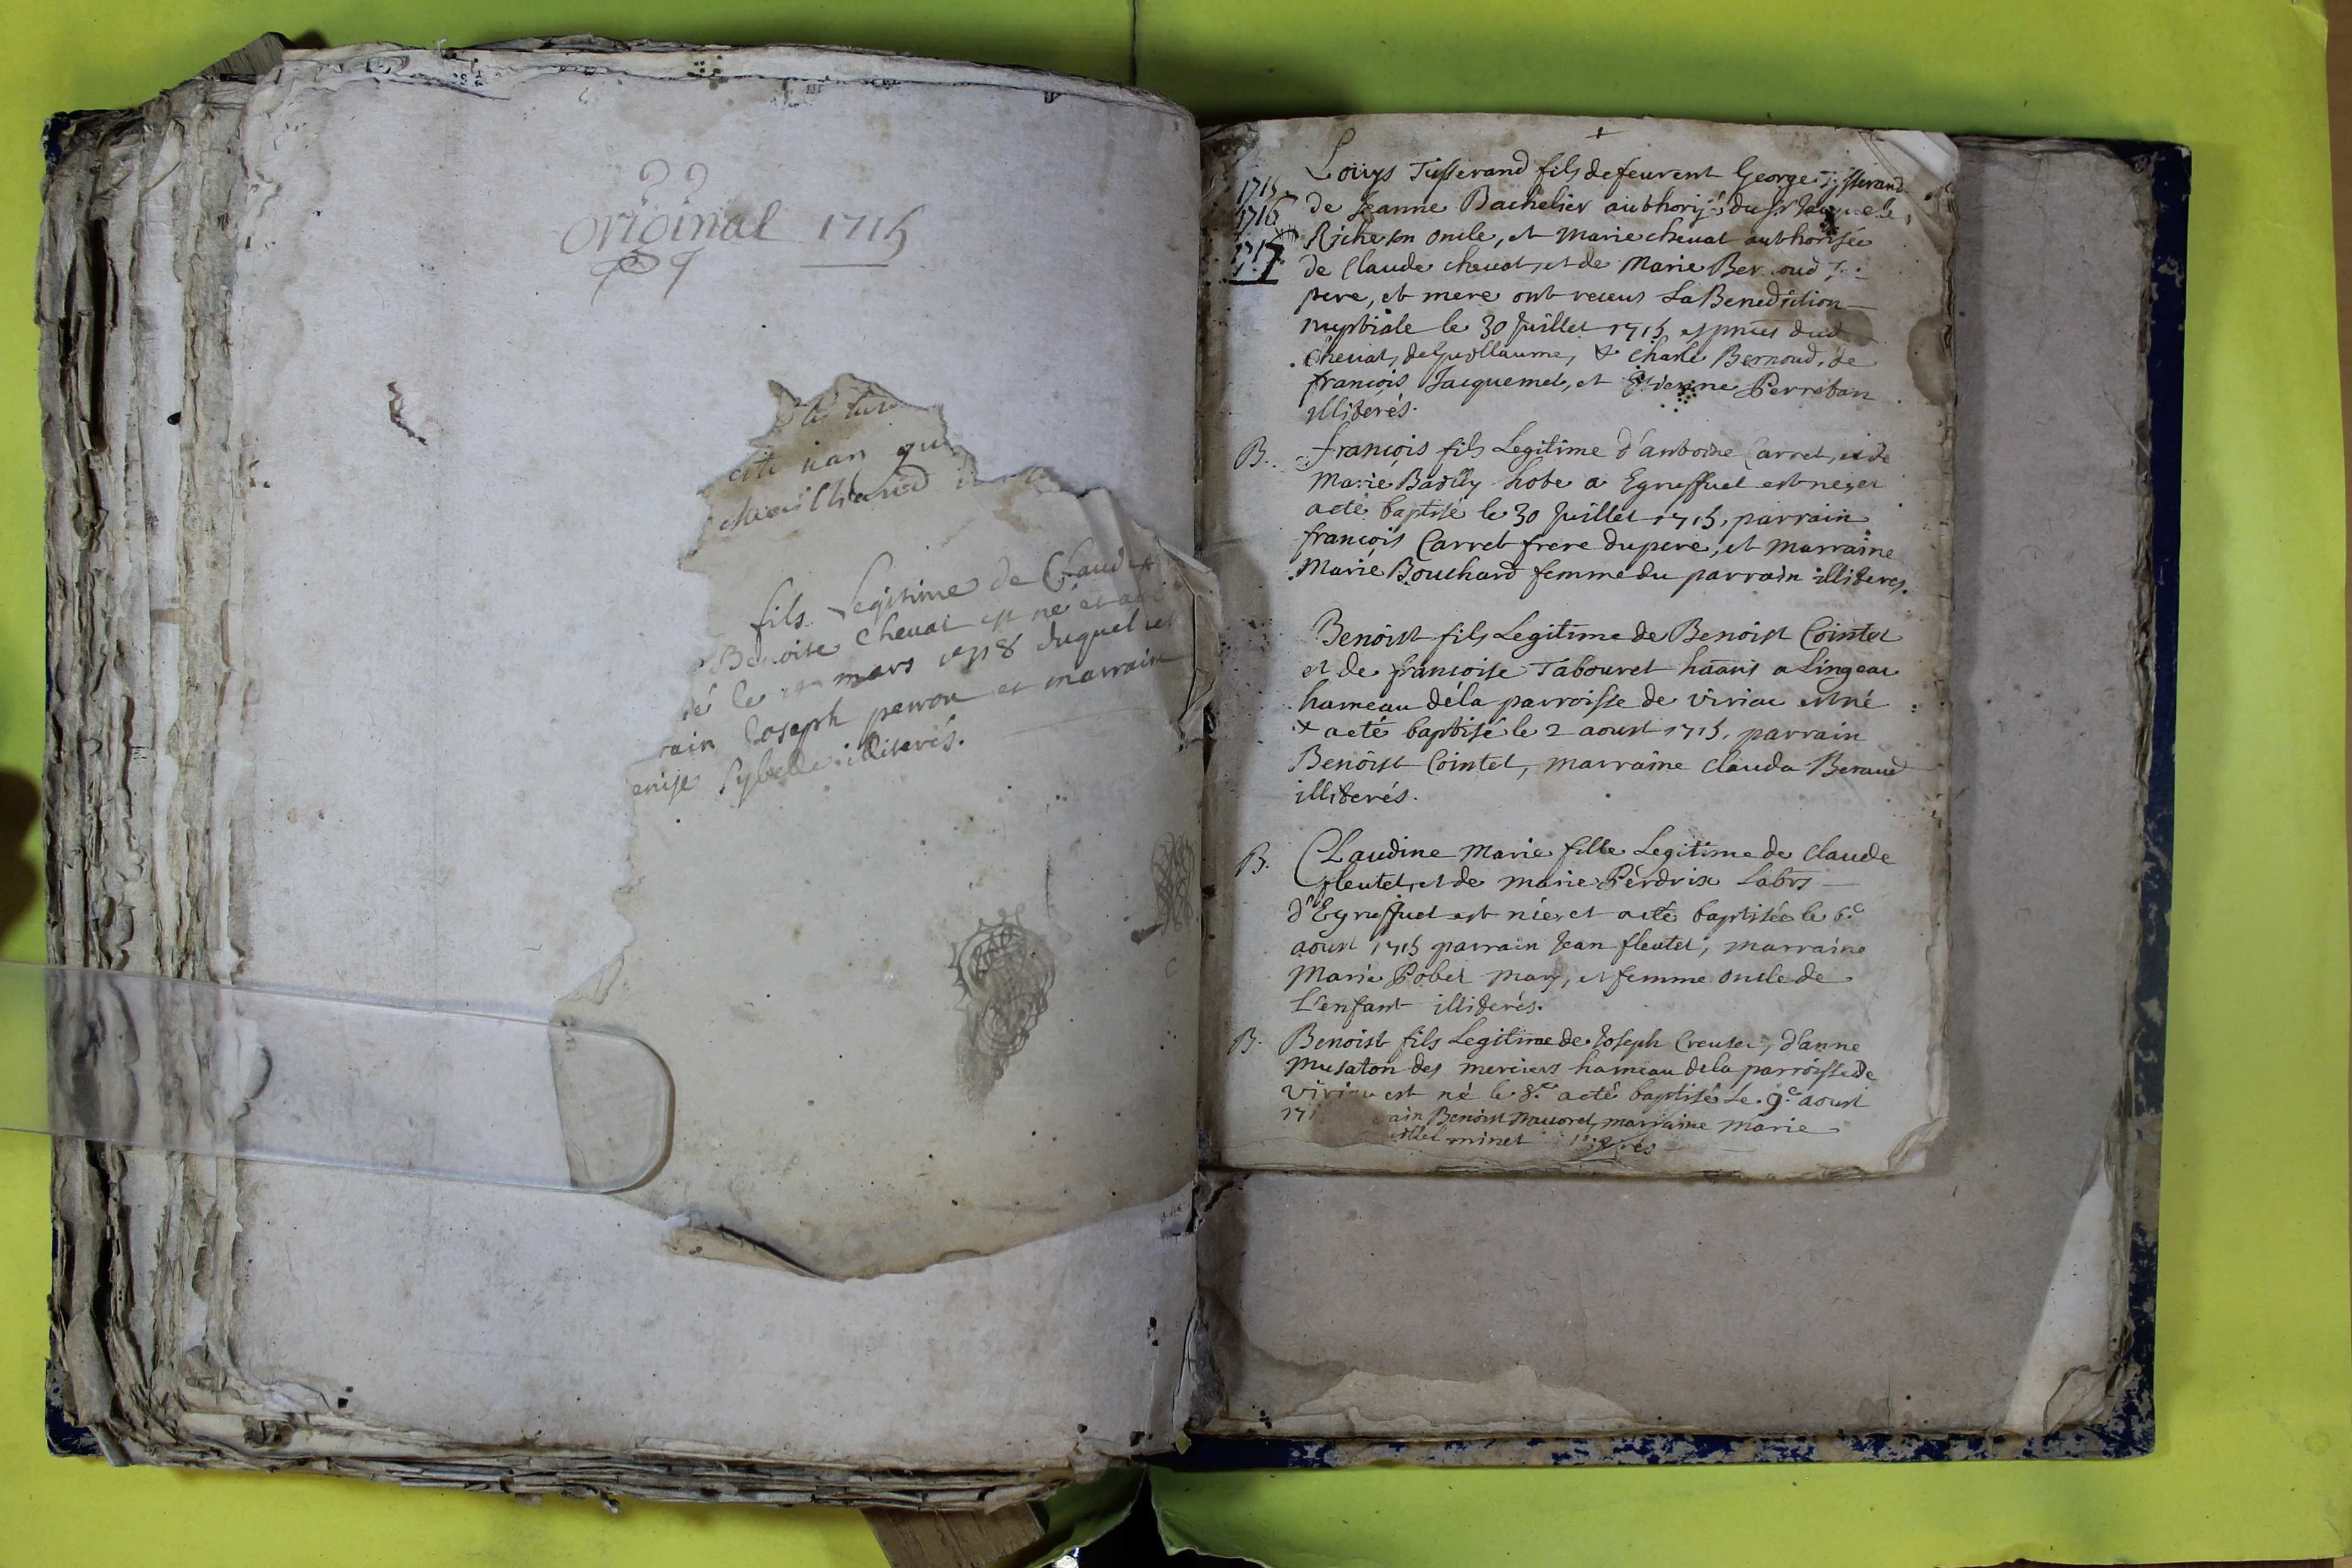 original 1715
cite
fils Legitime de Claude
Benoite Chevat est né et a
le mars 1718 duquel
rain Joseph perron et marraine
illiterés.
1715
1716
1717
Loüys Tisserand fils defeurent George Tisserand
de Jeanne Bachelier authorisé du Sr
Riche son oncle, et Marie chevat authorisée
de Claude chevat, et de Marie Bernoud
pere, et mere ont receus La Benediction
nuptiale le 30 Juillet 1715 es pnces dud
Chevat, de Guillaume, & Charle Bernoud, de
françois Jacquemet, et Etienne Perratan
illiterés.
B. françois fils Legitime d'antoine Carret, et de
Marie Bailly hote a Egreffuel est né, et
a eté baptisé le 30 Juillet 1715, parrain
françois Carret frere du pere, et Marraine
Marie Bouchard femme du parrain illiteres.
Benoist fils Legitime de Benoist Cointet
et de françoise Tabouret haans a Lingeat
hameau de la parroisse de viriac est né
& a eté baptisé le 2 aoust 1715, parrain
Benoist Cointet, marraine Clauda Beraud
illiterés.
B. Claudine Marie fille Legitime de Claude
fleutet, et de Marie Perdrix Labrs
d'Egreffuel est née, et a eté baptisée le 6e
aoust 1715 parrain Jean fleutet, marraine
Marie Pobel mary, et femme oncle de
L'enfant illiterés.
B. Benoist fils Legitime de Joseph Creuset, d'anne
Musaton des merciers hameau de la parroisse de
viriac est né le 8e a eté baptisé Le 9e aoust
171 ain Benoist marraine Marie
minet